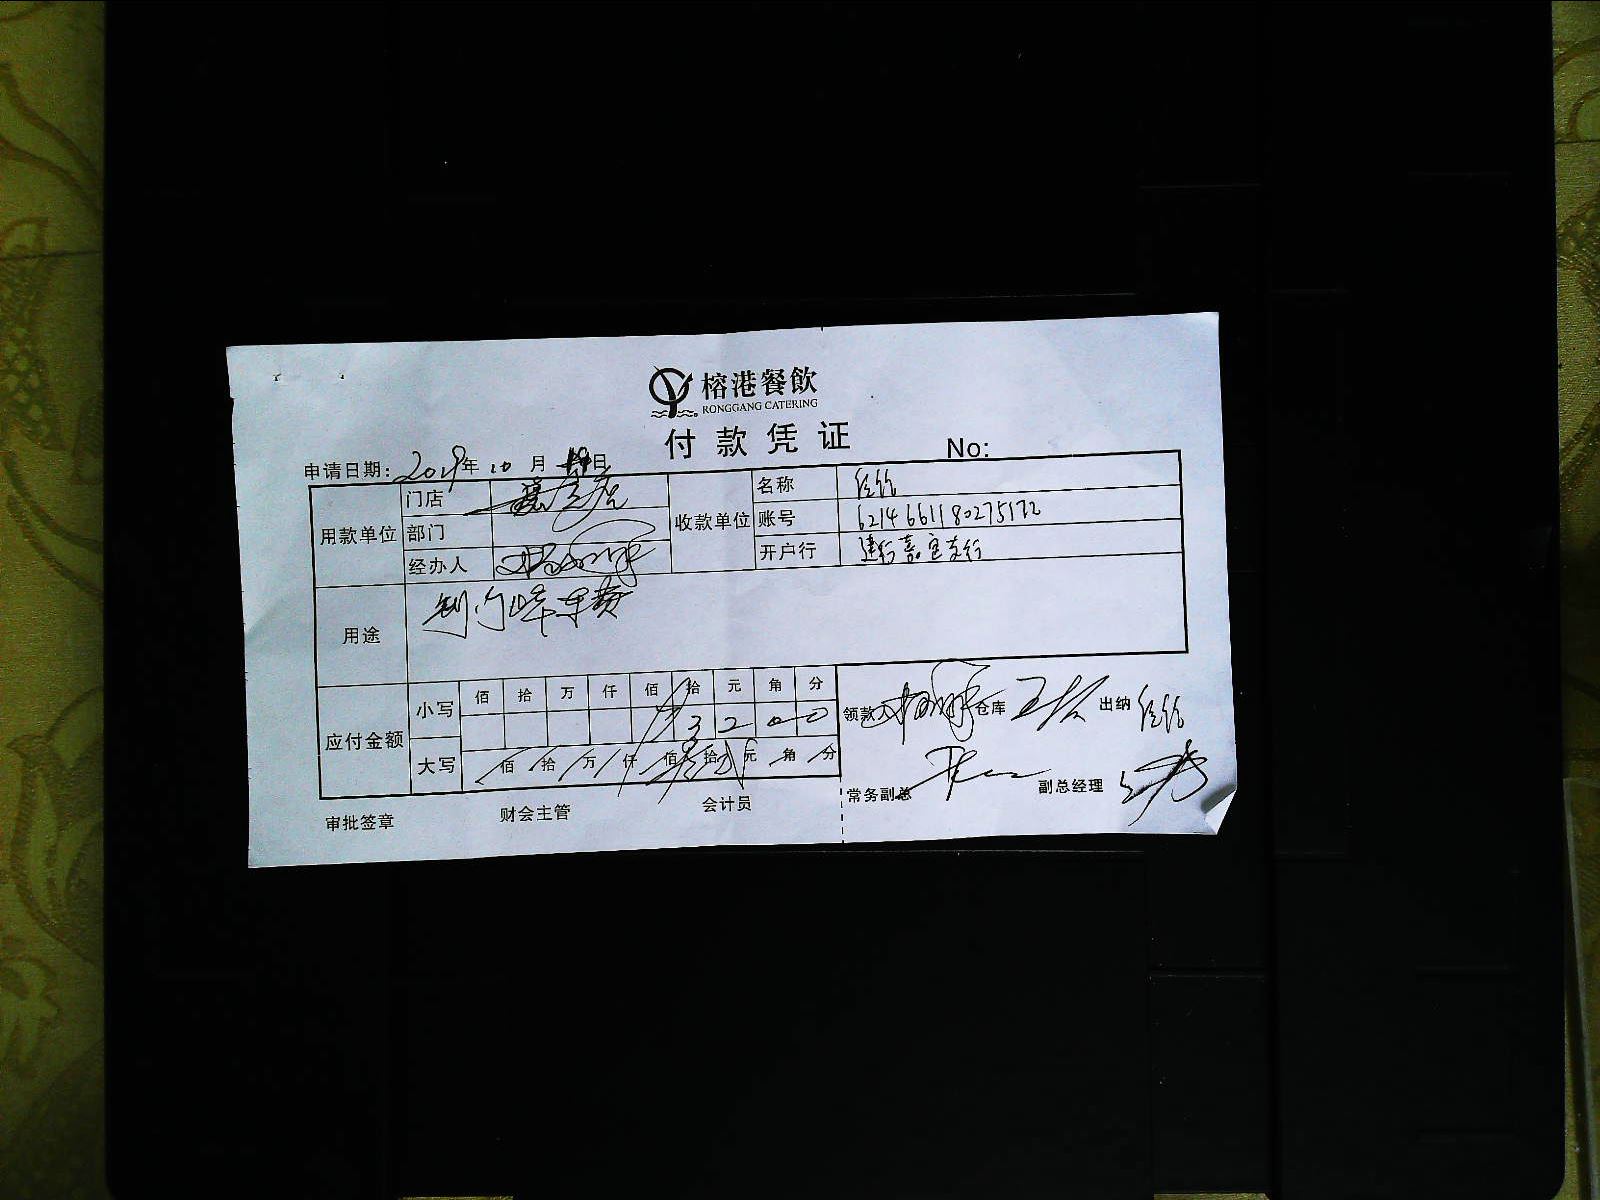 榕港餐飲
RONGGANG CATERING
付款凭证
No:
申请日期: 2019年 10 月 日
用款单位
门店
部门
经办人
收款单位
名称
账号 6214661180275172
开户行 建行嘉宝支行
用途
车费
应付金额
小写
佰 拾 万 仟 佰 拾 元 角 分
3 2 0 0
大写
佰 拾 万 仟 佰 叁拾 贰元 角 分
领款人
仓库
出纳
常务副总
副总经理
审批签章
财会主管
会计员